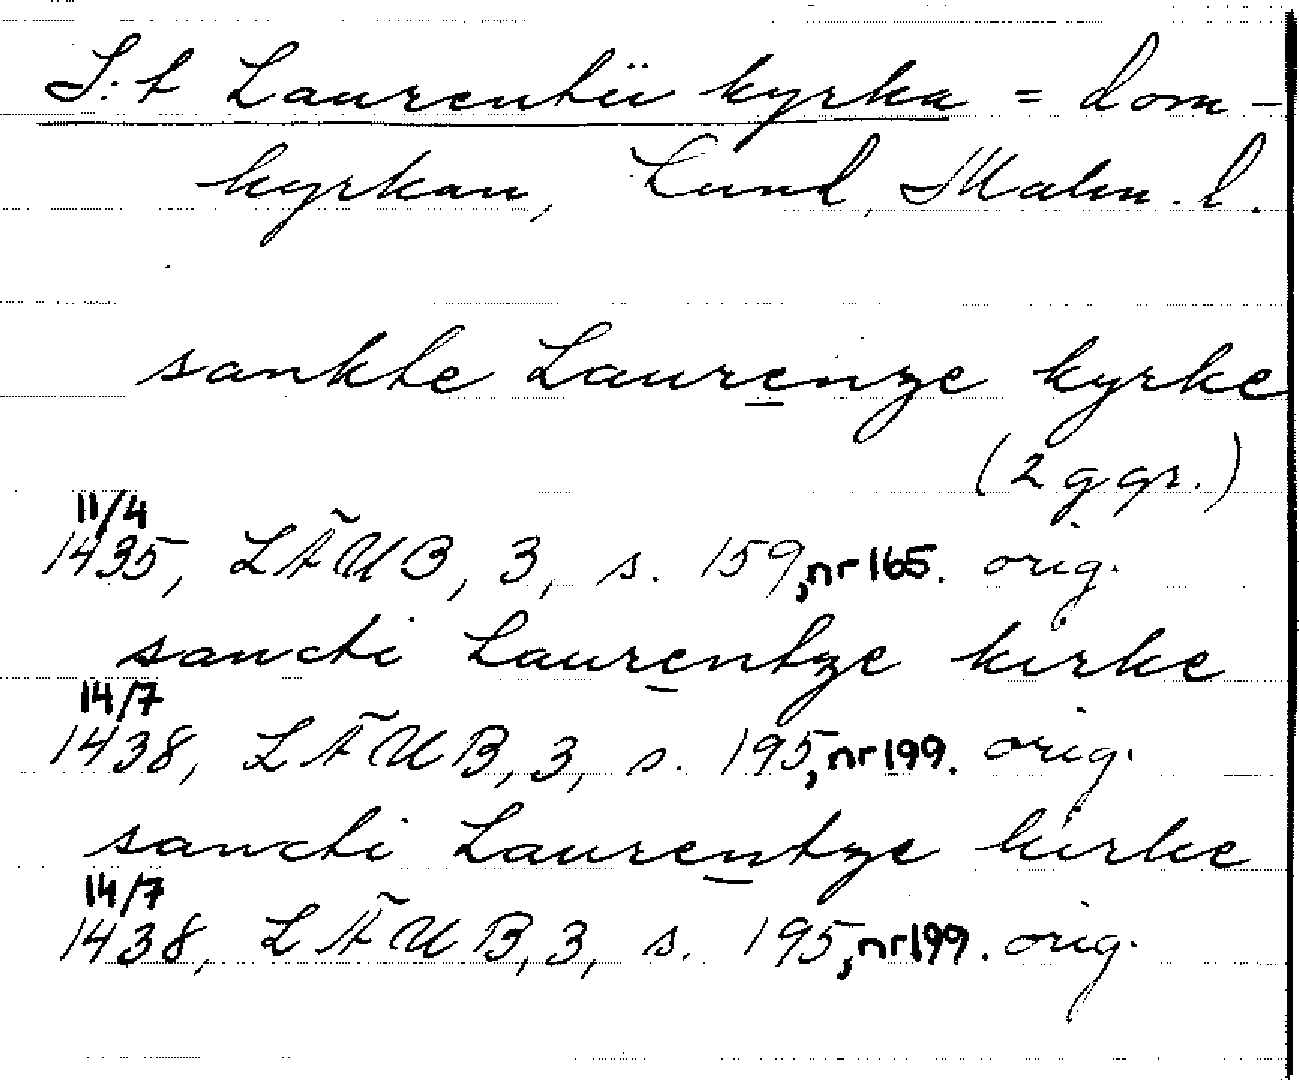 S:t Laurentii kyrka = dom-
kyrkan, Lund, Malm. l.
sankte Laurenze kyrke
(2 ggr.)
11/4
1435, LÄUB, 3, s. 159, nr 165. orig.
sancti Laurentze kirke
14/7
1438, LÄUB, 3, s. 195, nr 199. orig.
sancti Laurentze kirke
14/7
1438, LÄUB, 3, s. 195, nr 199. orig.